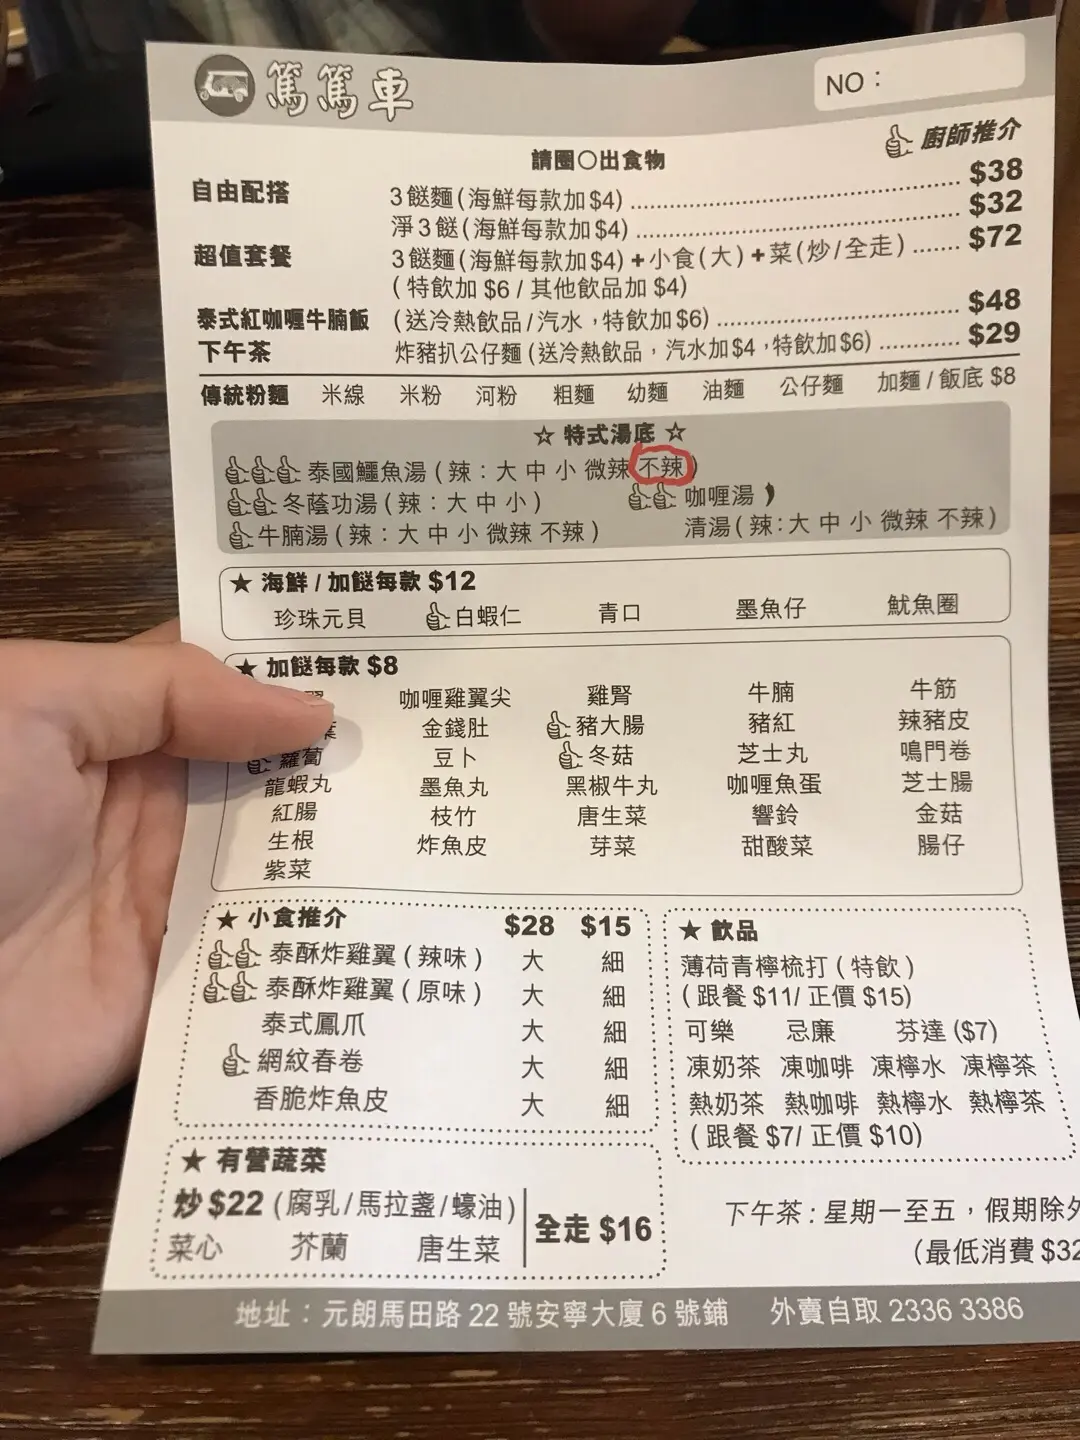 篤篤車
NO：
廚師推介
請圈〇出食物
自由配搭 3餸麵(海鮮每款加$4) $38
淨3餸(海鮮每款加$4) $32
超值套餐 3餸麵(海鮮每款加$4)+小食(大)+菜(炒/全走) $72
(特飲加$6/其他飲品加$4)
泰式紅咖喱牛腩飯 (送冷熱飲品/汽水，特飲加$6) $48
下午茶 炸豬扒公仔麵(送冷熱飲品，汽水加$4，特飲加$6) $29
傳統粉麵 米線 米粉 河粉 粗麵 幼麵 油麵 公仔麵 加麵/飯底 $8
☆ 特式湯底 ☆
泰國鱷魚湯(辣：大 中 小 微辣 不辣)
冬蔭功湯(辣：大 中 小) 咖喱湯
牛腩湯(辣：大 中 小 微辣 不辣) 清湯(辣：大 中 小 微辣 不辣)
★ 海鮮/加餸每款 $12
珍珠元貝 白蝦仁 青口 墨魚仔 魷魚圈
★ 加餸每款 $8
咖喱雞翼尖 雞腎 牛腩 牛筋
金錢肚 豬大腸 豬紅 辣豬皮
蘿蔔 豆卜 冬菇 芝士丸 鳴門卷
龍蝦丸 墨魚丸 黑椒牛丸 咖喱魚蛋 芝士腸
紅腸 枝竹 唐生菜 響鈴 金菇
生根 炸魚皮 芽菜 甜酸菜 腸仔
紫菜
★ 小食推介 $28 $15
泰酥炸雞翼(辣味) 大 細
泰酥炸雞翼(原味) 大 細
泰式鳳爪 大 細
網紋春卷 大 細
香脆炸魚皮 大 細
★ 飲品
薄荷青檸梳打(特飲)
(跟餐 $11/ 正價 $15)
可樂 忌廉 芬達 ($7)
凍奶茶 凍咖啡 凍檸水 凍檸茶
熱奶茶 熱咖啡 熱檸水 熱檸茶
(跟餐 $7/ 正價 $10)
★ 有營蔬菜
炒 $22 (腐乳/馬拉盞/蠔油)
菜心 芥蘭 唐生菜
全走 $16
下午茶：星期一至五，假期除外
(最低消費 $32
地址：元朗馬田路 22 號安寧大廈 6 號鋪 外賣自取 2336 3386